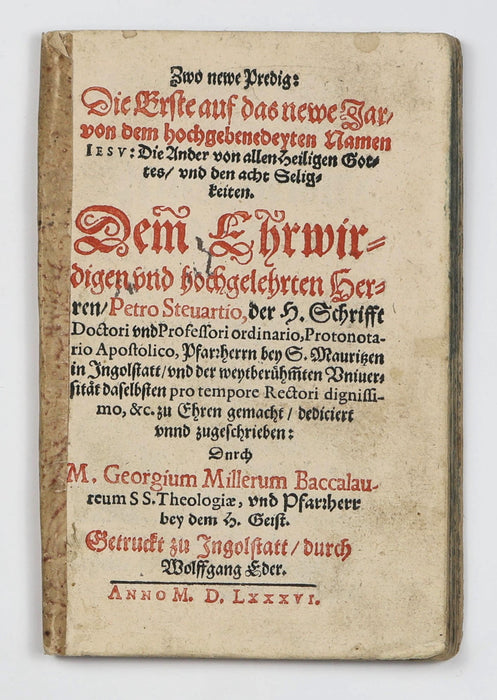 Zwo newe Predig:
Die Erste auf das newe Jar/
von dem hochgebenedeyten Namen
IESV: Die Ander von allen Heiligen Got-
tes/ vnd den acht Selig-
keiten.
Dem̃ Ehrwir-
digen vnd hochgelehrten Her-
ren/ Petro Steuartio, der H. Schrifft
Doctori vnd Professori ordinario, Protonota-
rio Apostolico, Pfarrherrn bey S. Mauritzen
in Ingolstatt/ vnd der weytberühm̃ten Vniuer-
sität daselbsten pro tempore Rectori dignissi-
mo, &c. zu Ehren gemacht/ dediciert
vnnd zugeschrieben:
Durch
M. Georgium Millerum Baccalau-
reum SS. Theologiæ, vnd Pfarrherr
bey dem H. Geist.
Getruckt zu Ingolstatt/ durch
Wolffgang Eder.
ANNO M. D. LXXXVI.